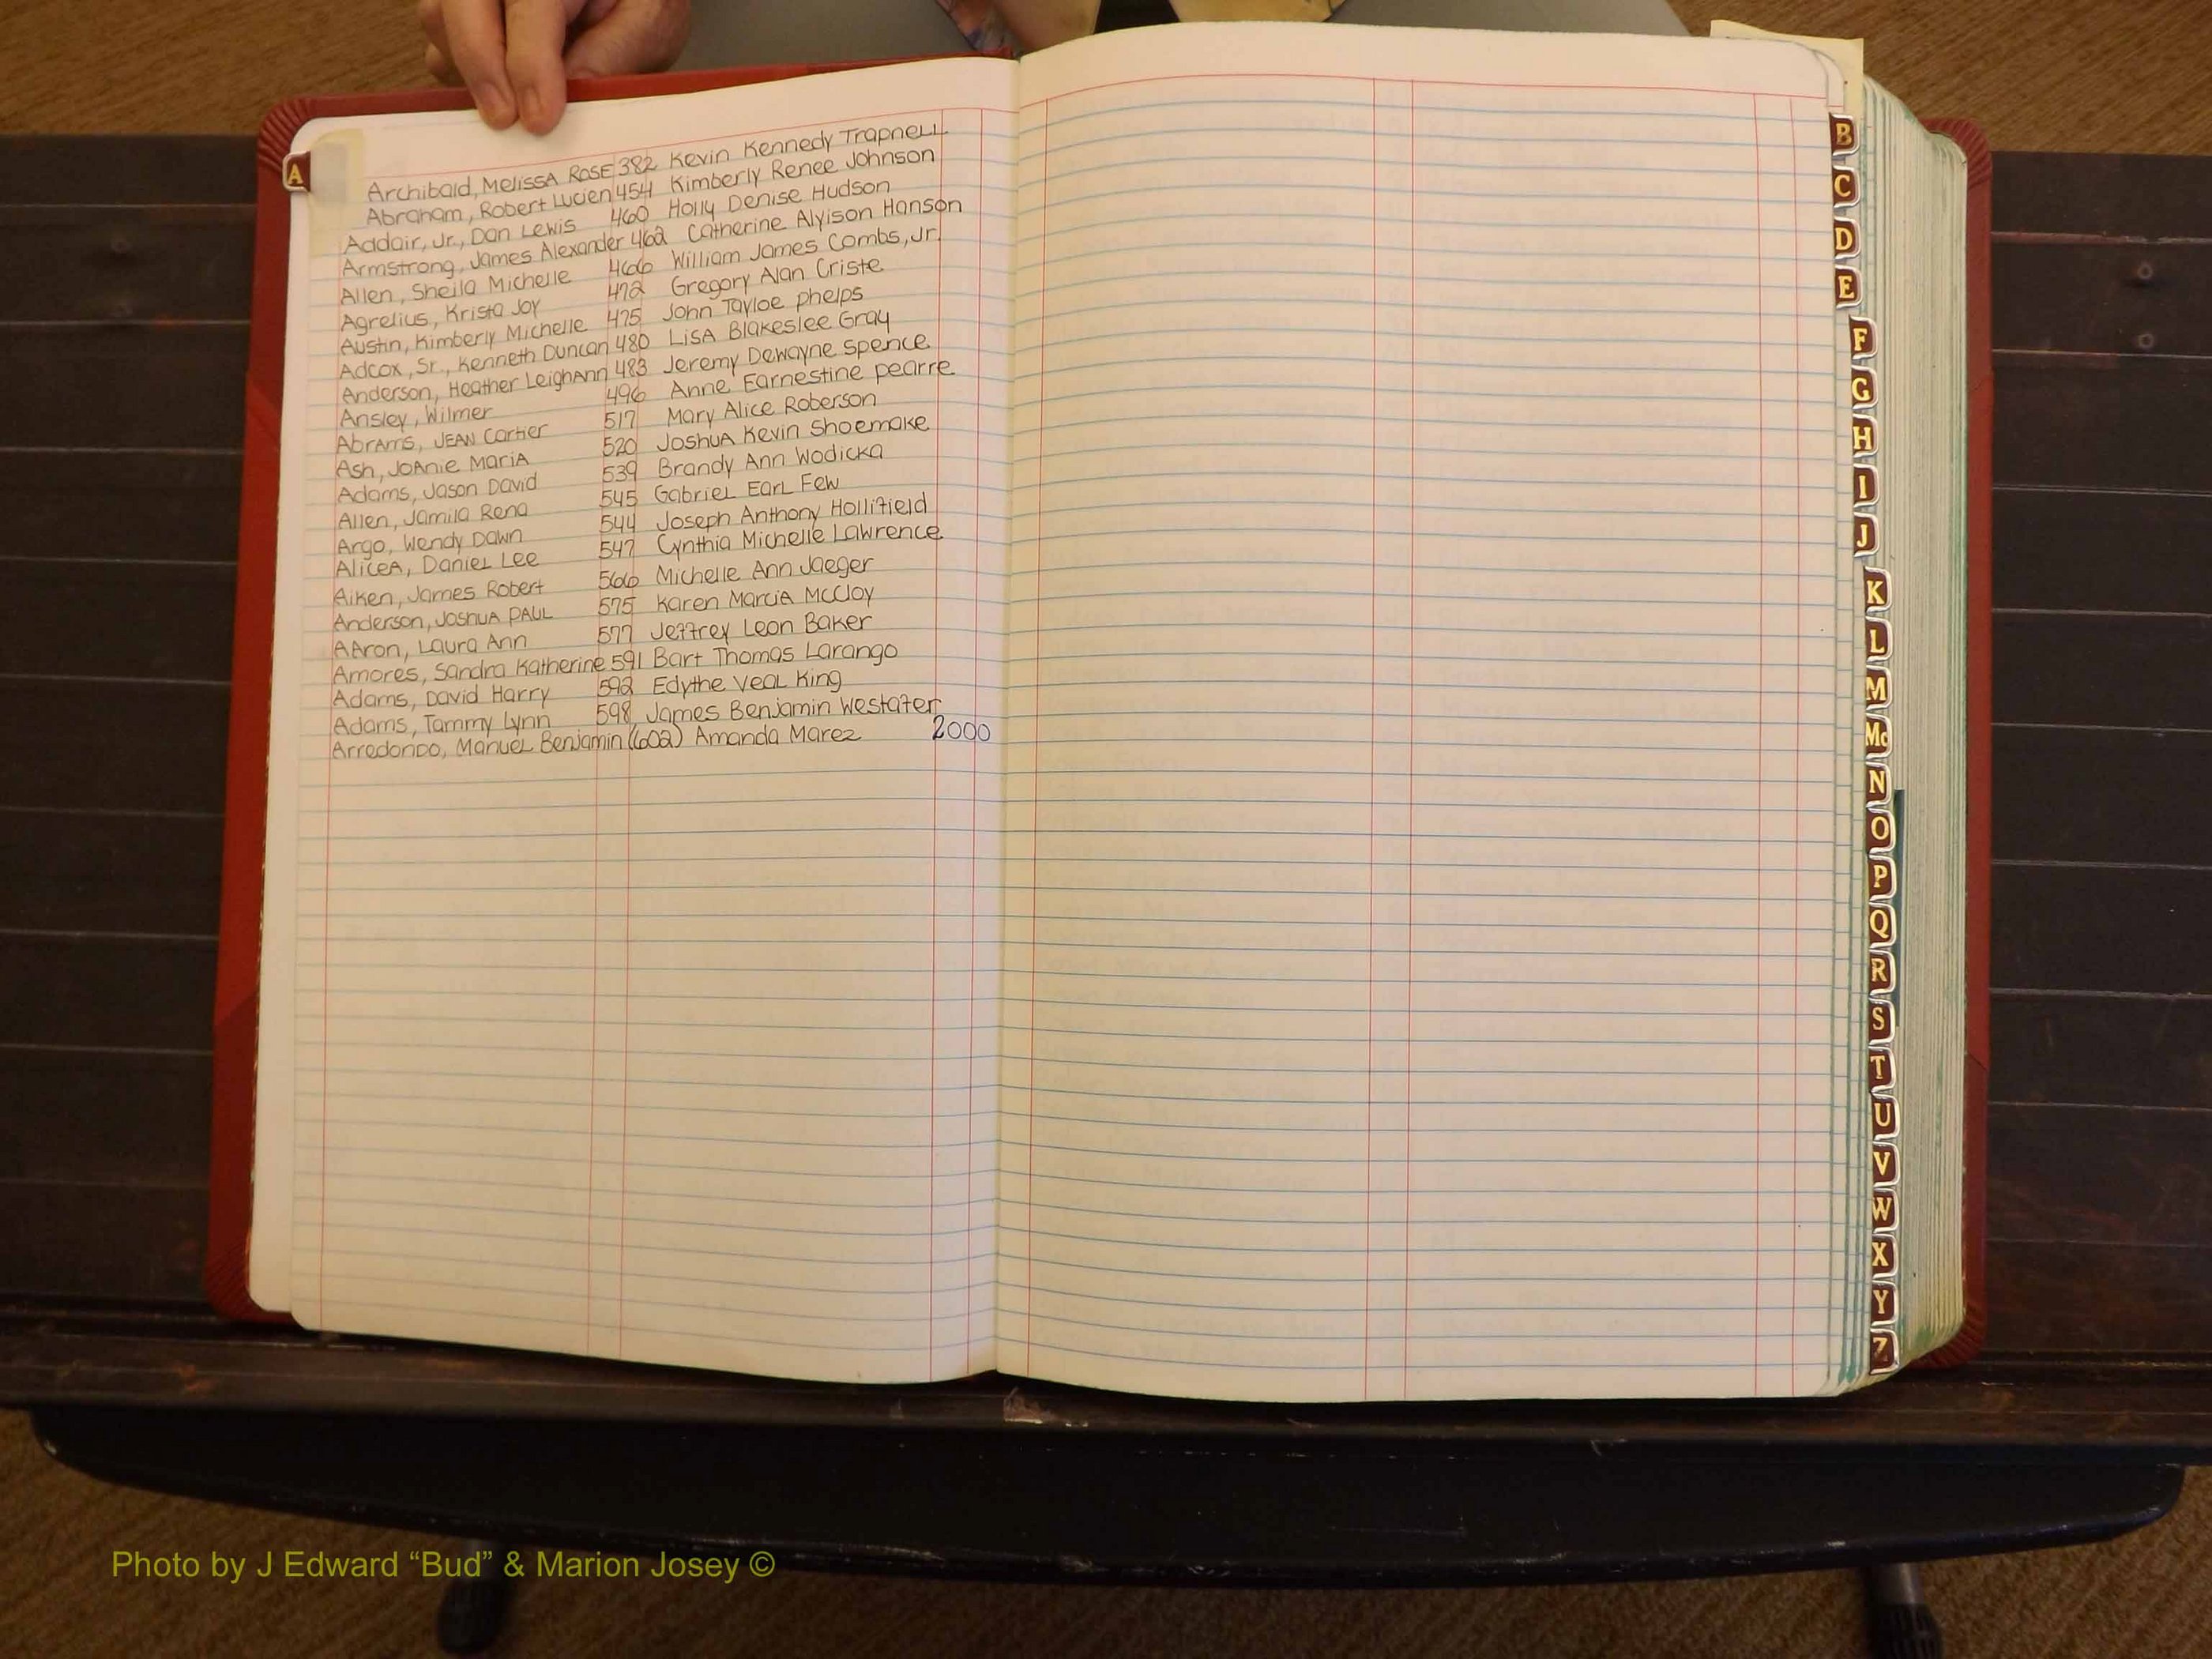 A
Archibald, Melissa Rose 382 Kevin Kennedy Trapnell
Abraham, Robert Lucien 454 Kimberly Renee Johnson
Addair, Jr., Dan Lewis 460 Holly Denise Hudson
Armstrong, James Alexander 462 Catherine Alyison Hanson
Allen, Sheila Michelle 466 William James Combs, Jr.
Agrelius, Krista Joy 472 Gregory Alan Criste
Austin, Kimberly Michelle 475 John Tayloe phelps
Adcox, Sr., Kenneth Duncan 480 Lisa Blakeslee Gray
Anderson, Heather LeighAnn 483 Jeremy Dewayne Spence
Ansley, Wilmer 496 Anne Earnestine pearre
Abrams, Jean Cartier 517 Mary Alice Roberson
Ash, JoAnie Maria 520 Joshua Kevin Shoemake
Adams, Jason David 539 Brandy Ann Wodicka
Allen, Jamila Rena 545 Gabriel Earl Few
Argo, Wendy Dawn 544 Joseph Anthony Hollifield
Alicea, Daniel Lee 547 Cynthia Michelle Lawrence
Aiken, James Robert 566 Michelle Ann Jaeger
Anderson, Joshua Paul 575 Karen Marcia McCloy
Aaron, Laura Ann 577 Jeffrey Leon Baker
Amores, Sandra Katherine 591 Bart Thomas Larango
Adams, David Harry 592 Edythe Veal King
Adams, Tammy Lynn 598 James Benjamin Westafer
Arredondo, Manuel Benjamin (602) Amanda Marez 2000
B
C
D
E
F
G
H
I
J
K
L
M
Mc
N
O
P
Q
R
S
T
U
V
W
X
Y
Z
Photo by J Edward “Bud” & Marion Josey ©